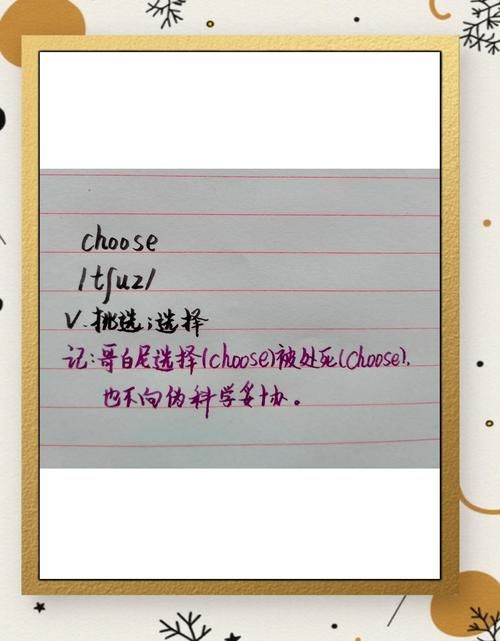 choose
/tʃuz/
V.挑选;选择
记:哥白尼选择(choose)被处死(choose),
也不向伪科学妥协。